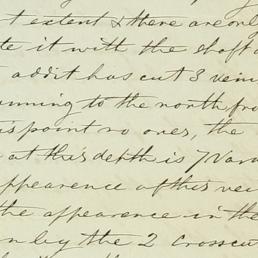 t extent & there are only
te it with the shaft a
addit has cut 3 vein
unning to the north fro
is point no ores, the
at this depth is 7 Vara
ppearence of this vei
the appearence in the
n by the 2 crosscu